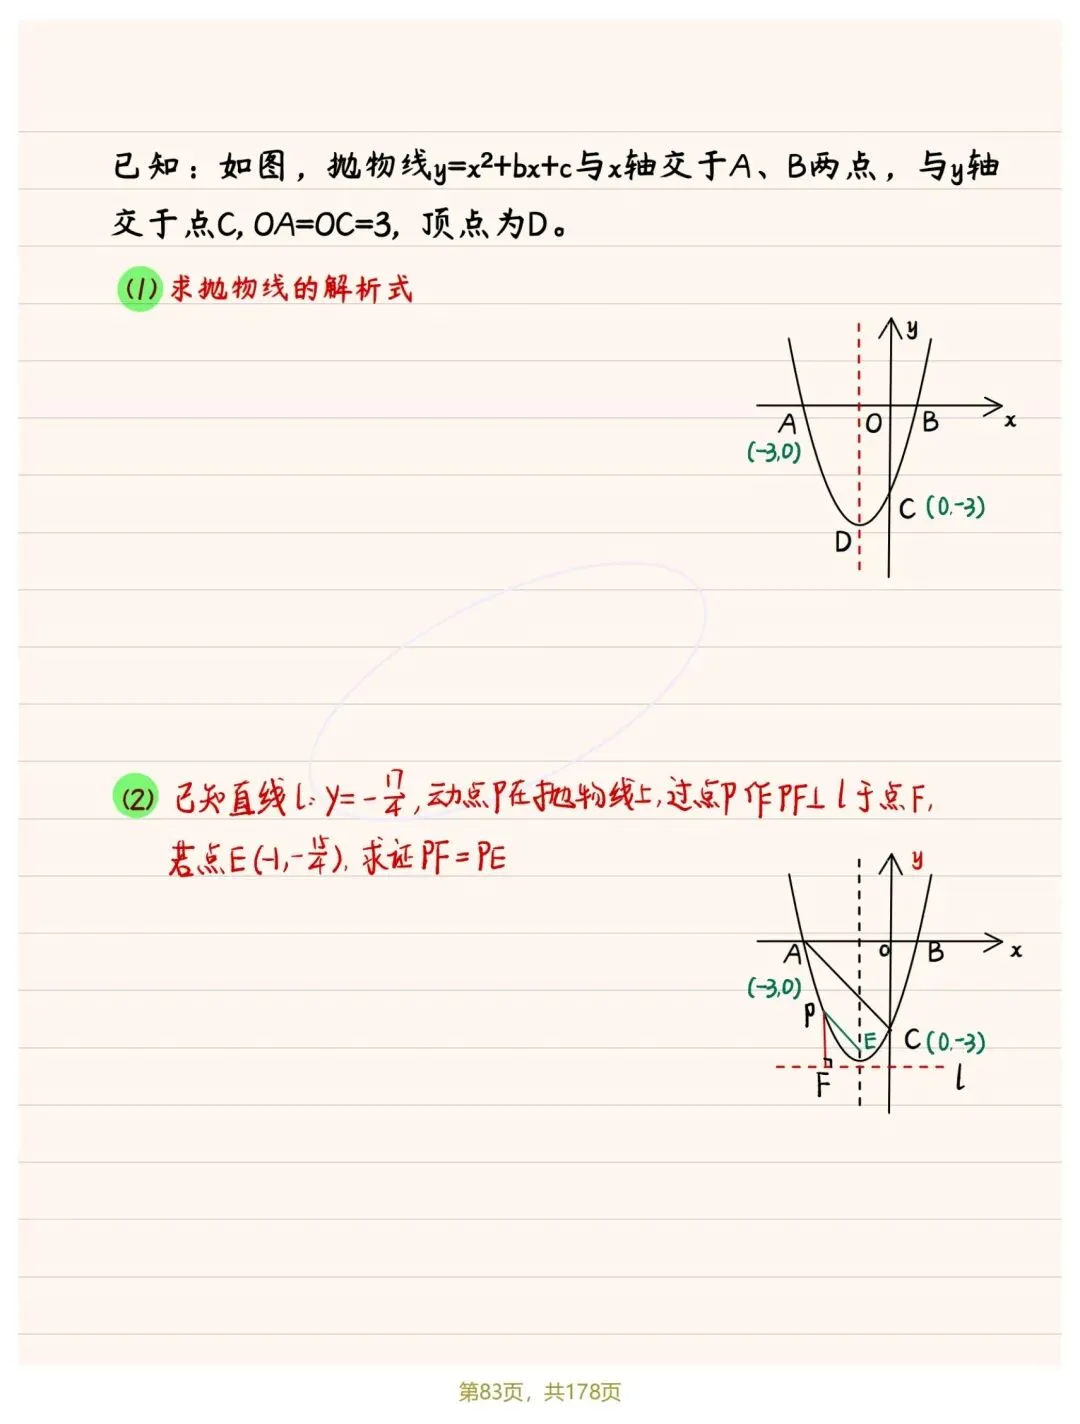 已知：如图，抛物线y=x²+bx+c与x轴交于A、B两点，与y轴
交于点C, OA=OC=3, 顶点为D。
(1) 求抛物线的解析式
y
A
O
B
x
(-3,0)
C (0,-3)
D
(2) 已知直线l: y=-17/4, 动点P在抛物线上, 过点P作PF⊥l于点F,
若点E(-1,-15/4), 求证PF=PE
y
A
o
B
x
(-3,0)
P
E
C (0,-3)
F
l
第83页，共178页